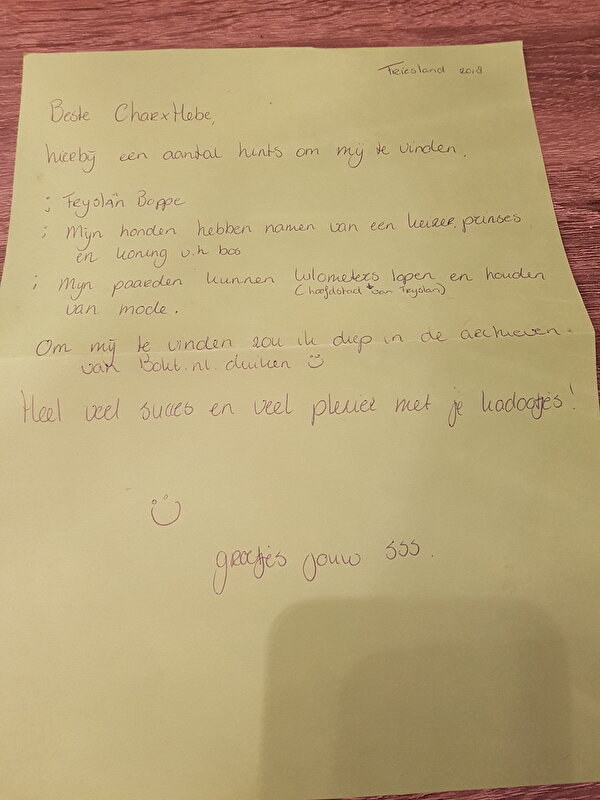 Friesland 2018
Beste CharxHebe,
hierbij een aantal hints om mij te vinden.
; Fryslân Boppe
; Mijn honden hebben namen van een keizer, prinses
en koning v.h bos
; Mijn paarden kunnen kilometers lopen en houden
(hoofdstad van Fryslan)
van mode.
Om mij te vinden zou ik diep in de archieven
van Bokt.nl. duiken
Heel veel succes en veel plezier met je kadootjes!
groetjes jouw sss.